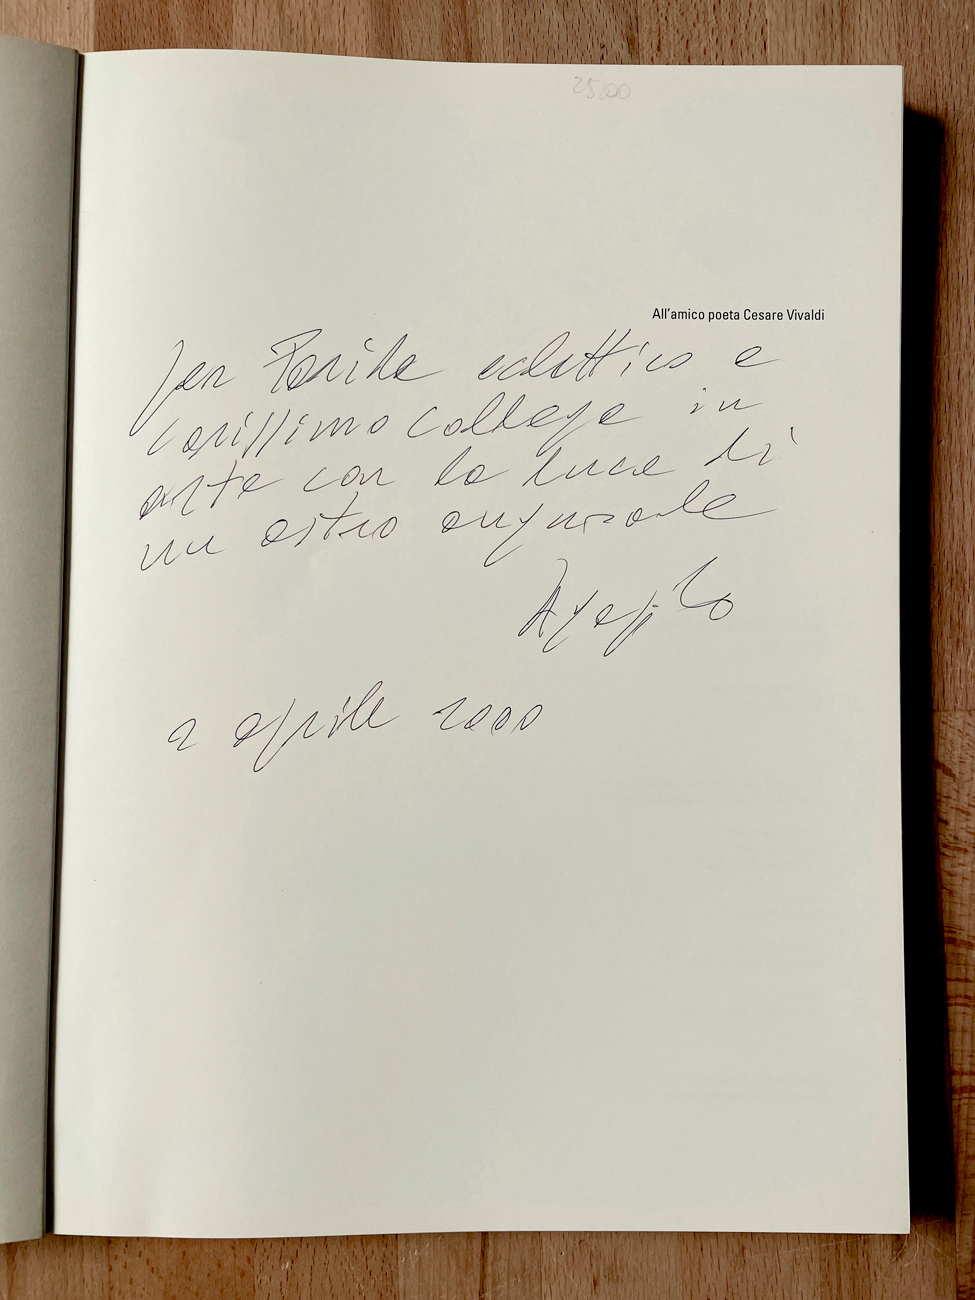 25,00
All'amico poeta Cesare Vivaldi
per Paride eclettico e
carissimo collega in
arte con la luce di
un astro augurale
2 aprile 2000